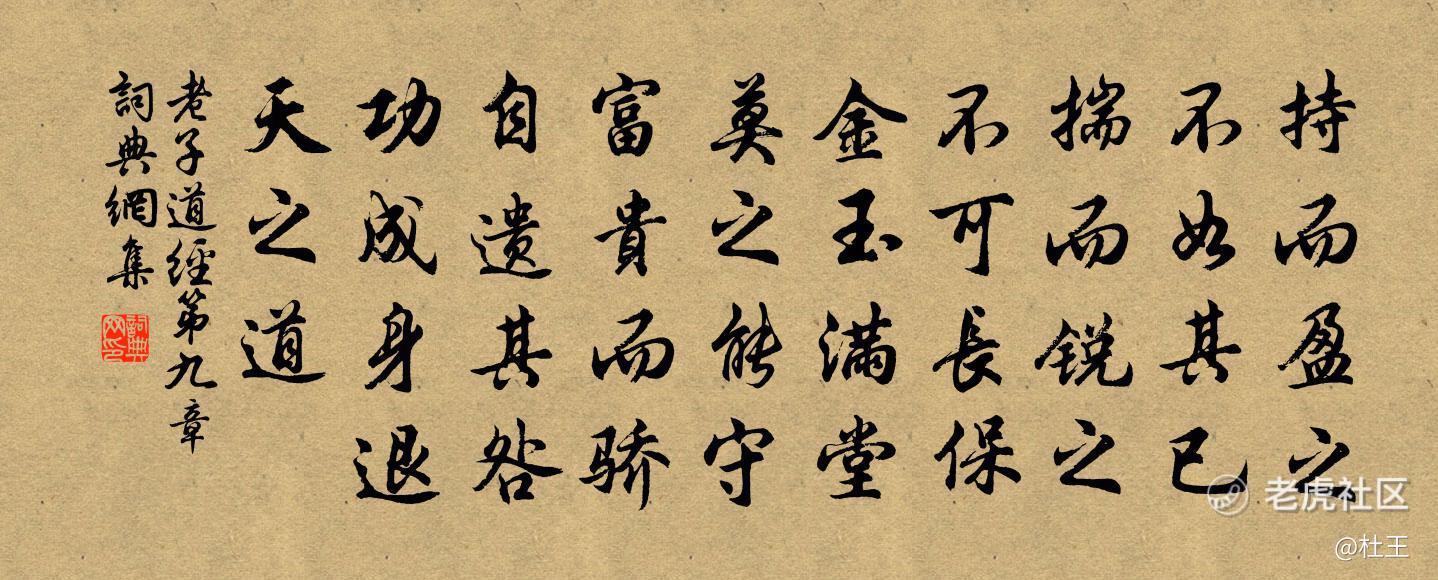 持而盈之
不如其已
揣而锐之
不可長保
金玉满堂
莫之能守
富貴而骄
自遗其咎
功成身退
天之道
老子道經第九章
詞典網集
詞典
网印
老虎社区
@杜王